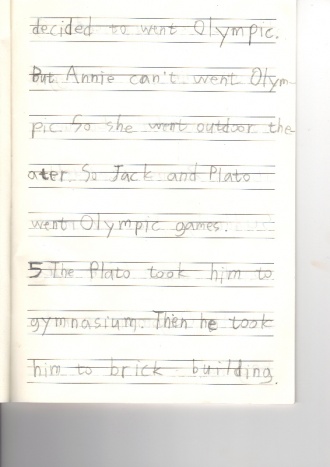 decided to went Olympic.
But Annie can't went Olym-
pic. So she went outdoor the-
ater. So Jack and Plato
went Olympic games.
5 The Plato took him to
gymnasium. Then he took
him to brick building.